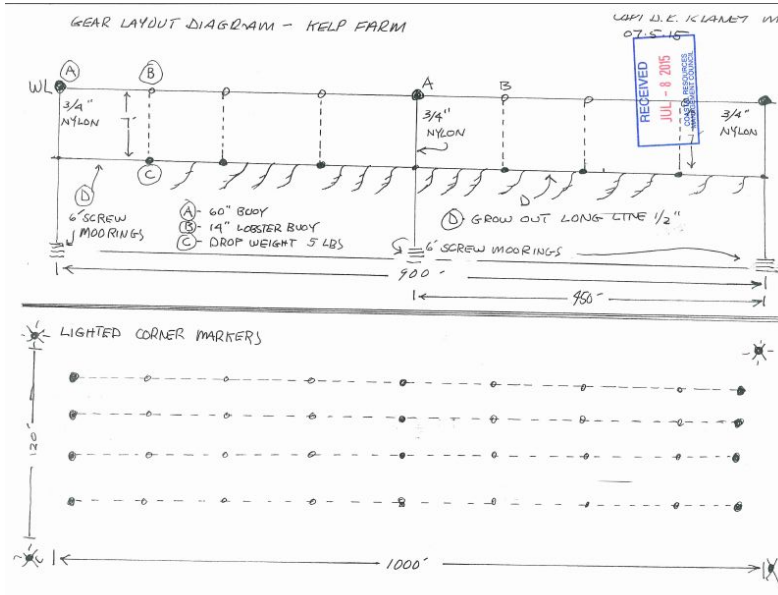 GEAR LAYOUT DIAGRAM - KELP FARM
07-5-15
RECEIVED
JUL - 8 2015
COASTAL RESOURCES
MANAGEMENT COUNCIL
A
B
A
B
WL
3/4"
NYLON
7'
3/4"
NYLON
3/4"
NYLON
7'
D
C
D
6' SCREW
MOORINGS
A - 60" BUOY
B - 14" LOBSTER BUOY
C - DROP WEIGHT 5 LBS
D - GROW OUT LONG LINE 1/2"
6' SCREW MOORINGS
900'
450'
LIGHTED CORNER MARKERS
120'
1000'